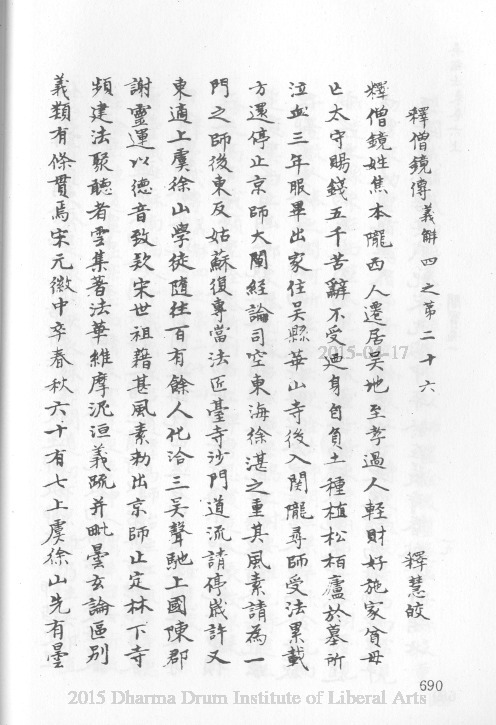 釋僧鏡傳義解四之第二十六
釋慧皎
釋僧鏡姓焦本隴西人遷居吳地至孝過人輕財好施家貧母
亡太守賜錢五千苦辭不受廼身自負土種植松栢廬於墓所
泣血三年服畢出家住吳縣華山寺後入関隴尋師受法累載
方還停止京師大闡經論司空東海徐湛之重其風素請為一
門之師後東反姑蘇復專當法匠臺寺沙門道流請停歲許又
東適上虞徐山學徒隨往百有餘人化洽三吳聲馳上國陳郡
謝靈運以德音致欵宋世祖藉甚風素勑出京師止定林下寺
頻建法聚聽者雲集著法華維摩泥洹義疏并毗曇玄論區别
義類有條貫焉宋元徽中卒春秋六十有七上虞徐山先有曇
690
2015-04-17
2015 Dharma Drum Institute of Liberal Arts